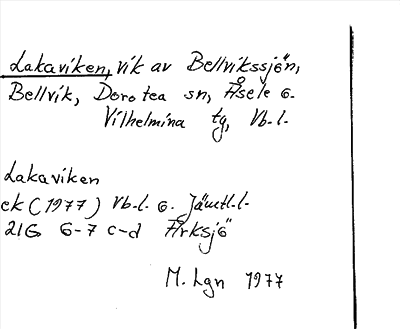 Lakaviken, vik av Bellvikssjön,
Bellvik, Dorotea sn, Åsele o.
Vilhelmina tg, Vb.l.
Lakaviken
ek (1977) Vb.l. o. Jämtl.l.
21G 6-7 c-d Arksjö
M. Lgn 1977